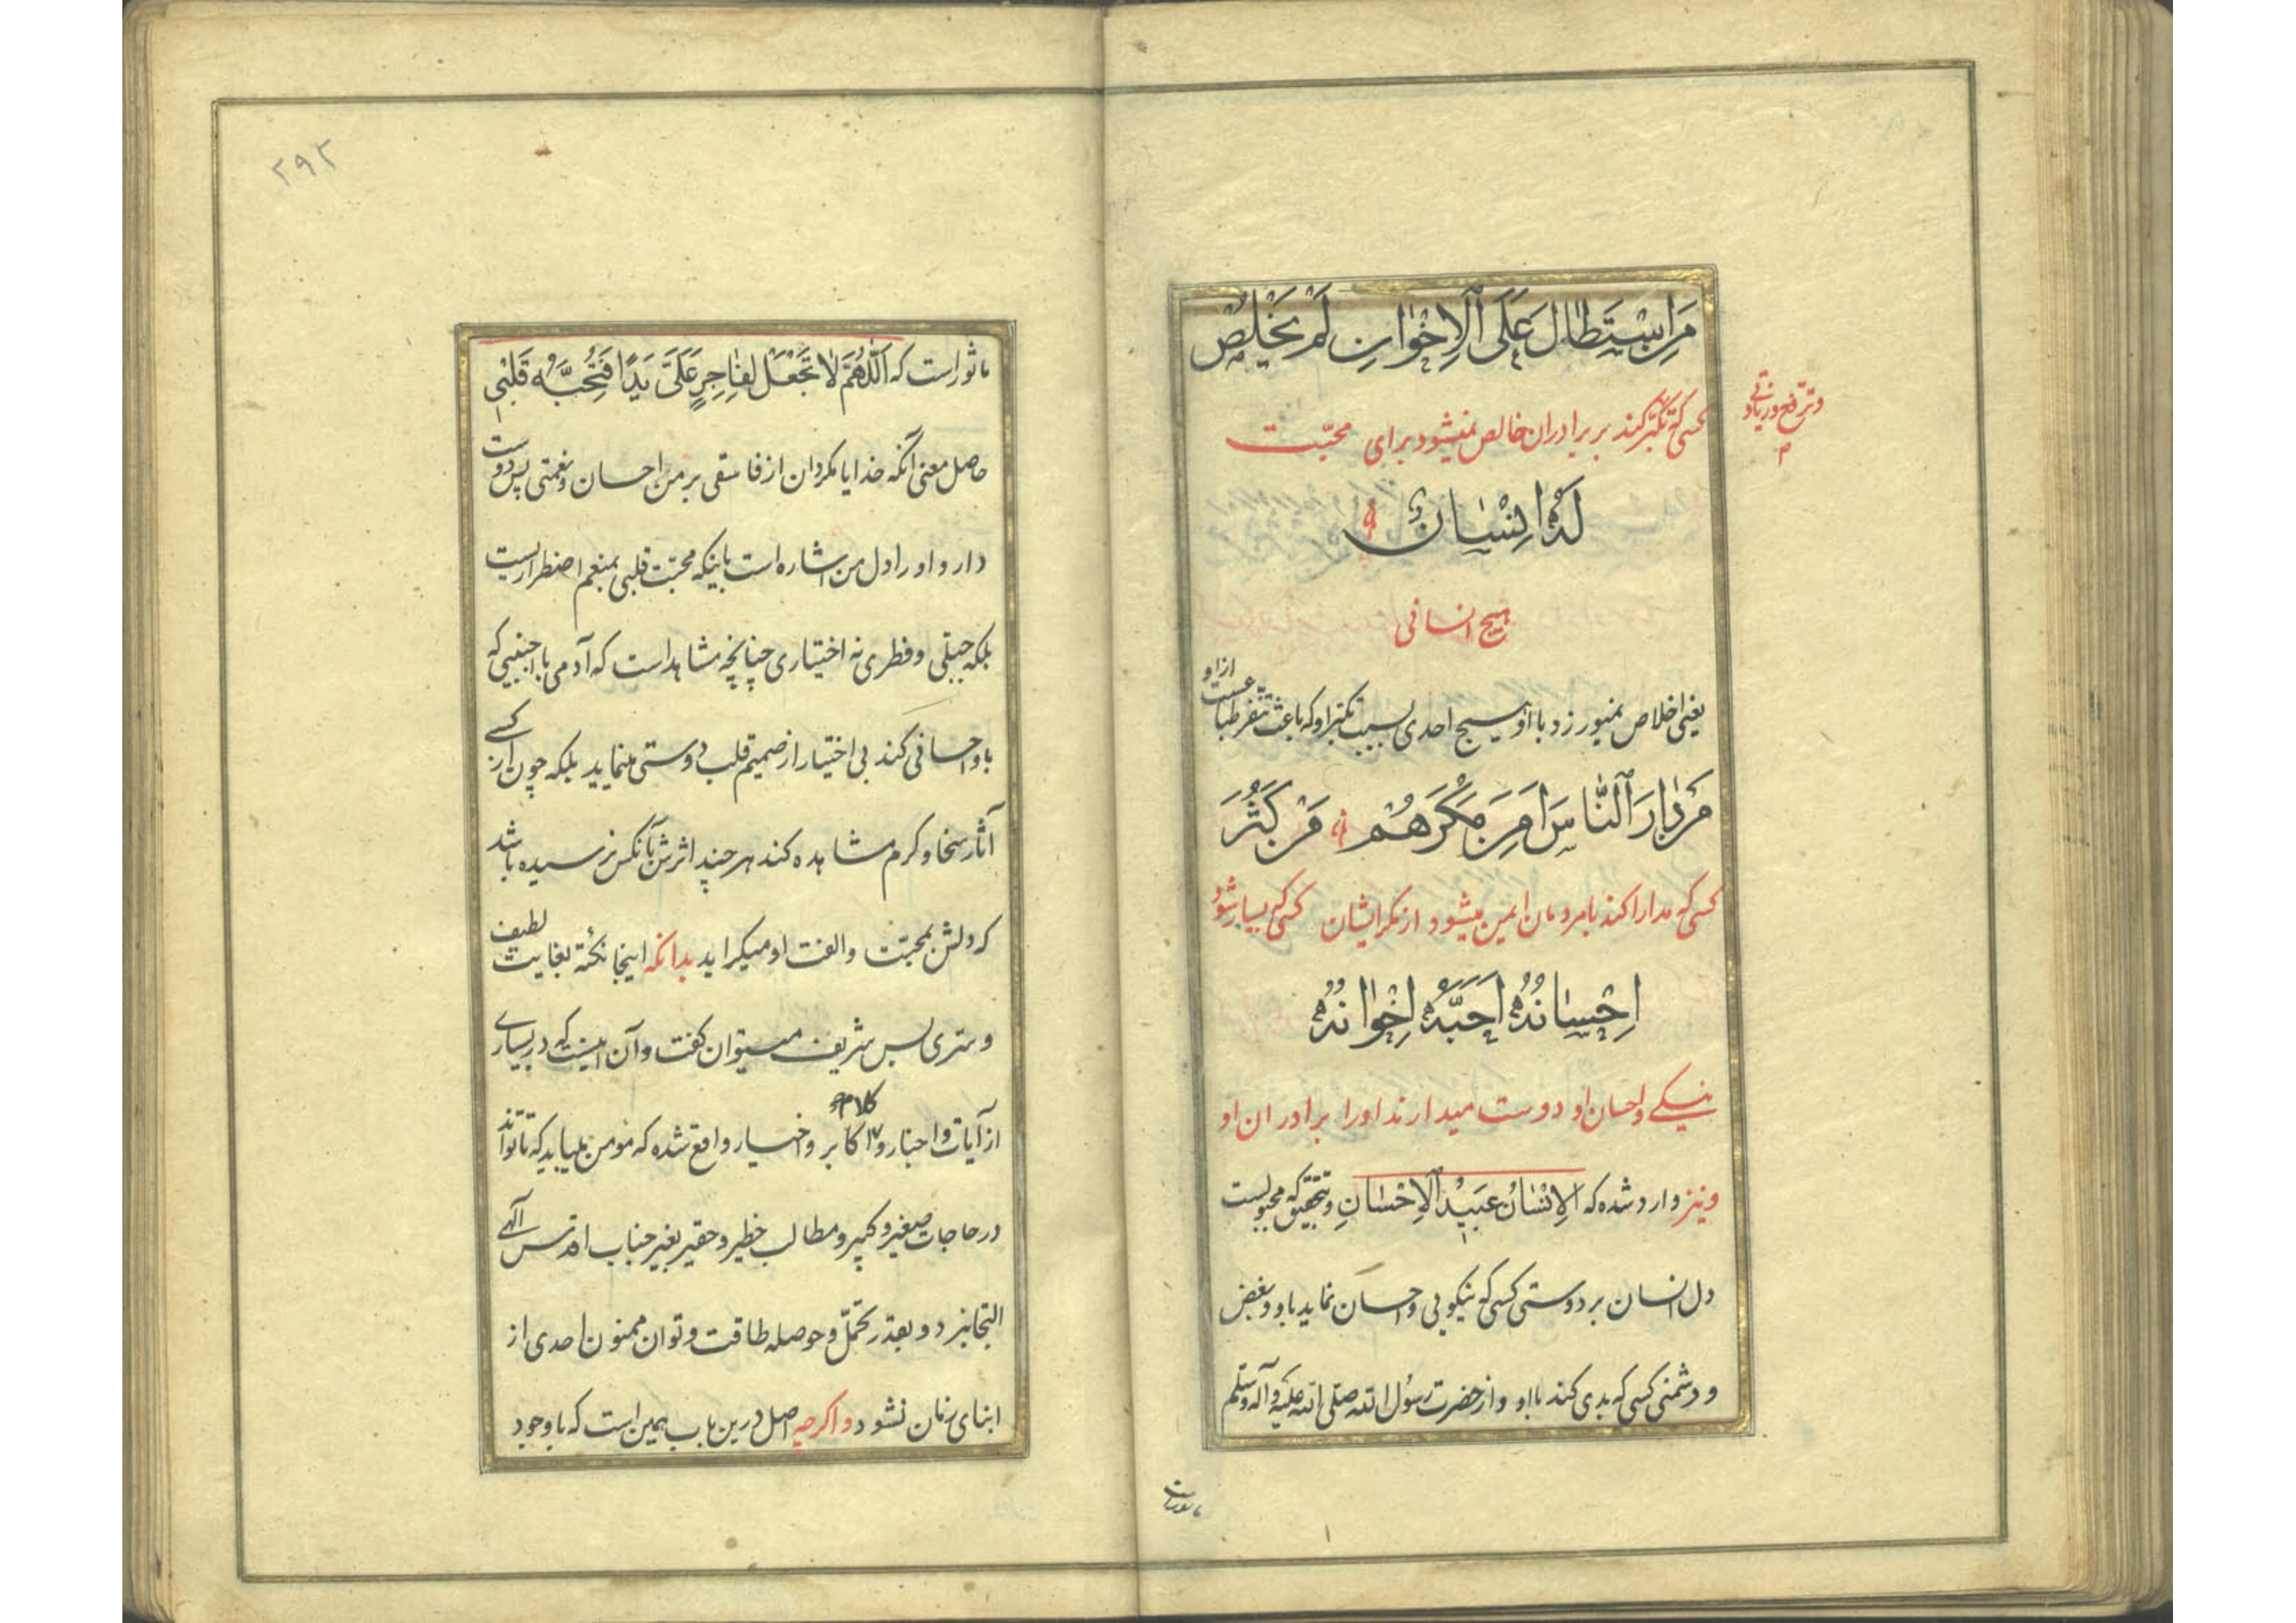 مَنِ اسْتَطَالَ عَلَى الْإِخْوَانِ لَمْ يَخْلُصْ
کسی که تکبّر کند بر برادران خالص نمیشود برای محبّت
و ترفّع و زیادتی
لَهُ اِنْسَانٌ
هیچ انسانی
یعنی اخلاص نمیورزد با او هیچ احدی بسبب تکبّر او که باعث تنفّر طباعست از او
مَنْ دَارَ النَّاسَ اَمِنَ مَكْرَهُمْ مَنْ كَثُرَ
کسی که مدارا کند با مردمان ایمن میشود از مکر ایشان کسی که بسیار شود
اِحْسَانُهُ اَحَبَّهُ اِخْوَانُهُ
نیکی و احسان او دوست میدارند او را برادران او
و نیز وارد شده که الْاِنْسَانُ عَبِيْدُ الْاِحْسَانِ و بتحقیق که مجبولست
دل انسان بر دوستی کسی که نیکویی و احسان نماید باو و بغض
و دشمنی کسی که بدی کند باو و از حضرت رسول الله صلی الله علیه و آله وسلم
ماثورست
۲۹۲
ماثور است که اَللّٰهُمَّ لَا تَجْعَلْ لِفَاجِرٍ عَلَيَّ يَدًا فَتُحِبَّهُ قَلْبِي
حاصل معنی آنکه خدایا مگردان از فاسقی بر من احسان و نعمتی پس دوست
دارد او را دل من اشاره است باینکه محبّت قلبی بمنعم اضطراریست
بلکه جبلّی و فطری نه اختیاری چنانچه مشاهد است که آدمی با اجنبیی که
باو احسانی کند بی اختیار از صمیم قلب دوستی مینماید بلکه چون از کسی
آثار سخا و کرم مشاهده کند هر چند اثرش بآنکس نرسیده باشد
که دلش بمحبّت و الفت او میگراید بدانکه اینجا نکتهٔ بغایت لطیف
و سرّی بس شریف میتوان گفت و آن اینست که در بسیاری
از آیات و اخبار و کلام اکابر و اخیار واقع شده که مؤمن میباید که تا تواند
در حاجات صغیر و کبیر و مطالب خطیر و حقیر بغیر جناب اقدس الٓهی
التجا نبرد و بقدر تحمّل و حوصله طاقت و توان ممنون احدی از
ابنای زمان نشود و اگرچه اصل درین باب همین است که با وجود